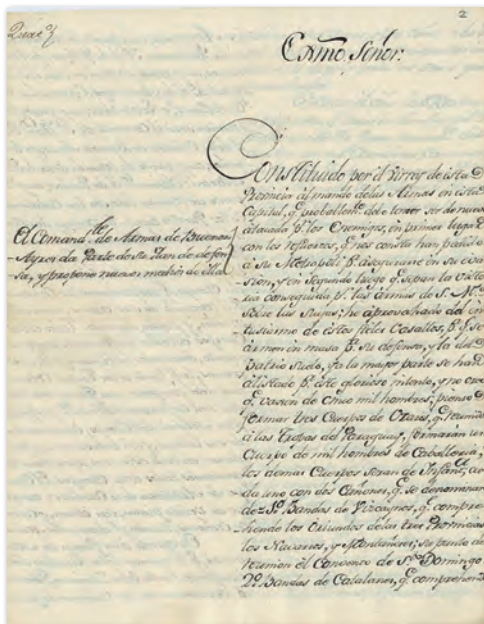 2
Exmo. Señor:
El Comand.te de Armas de Buenos
Ayres da Parte de su Plan de defen
sa, y propone nuevos medios de ella
Constituido por el Virrey de esta
Provincia al mando de las Armas en esta
Capital, q.e probablem.te debe temer ser de nuevo
atacada p.r los Enemigos, en primer lugar
con los refuerzos, q.e nos consta han pedido
á su Metropoli p.a asegurarse en su
y en Segundo luego q.e sepan la victo
ria conseguida p.r las armas de S. M.
sobre las suyas; he aprovechado del en
tusiasmo de estos fieles Vasallos, p.a q.e se
armen en masa p.a su defensa, y la del
Patrio Suelo, ya la mayor parte se han
alistado p.a este glorioso intento, y no
q.e de cinco mil hombres; pienso
formar tres Cuerpos de q.e reunidos
á las Tropas del Paraguay, formarán un
Cuerpo de mil hombres de Caballeria,
los demas Cuerpos seran de Infant.a ca
da uno con dos Cañones, q.e se denominar
de = 1.o Bandas de Vizcaynos, q.e compre
hende los Oriundos de las tres Provincias
los Navarros, y Montañeses; su punto de
reunion el Convento de S.to Domingo
2.o Bandas de Catalanes, q.e comprehend